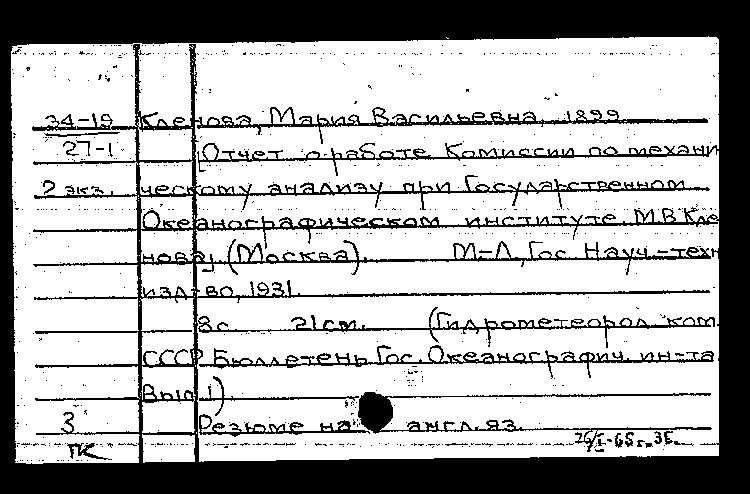 34-19 Кленова, Мария Васильевна, 1899
27-1 [Отчет о работе Комиссии по механи
2 экз. ческому анализу при Государственном
Океанографическом институте. М.В. Кле
новой. (Москва). М-Л, Гос. Науч.-техн
изд-во, 1931.
8с 21см. (Гидрометеорол. ком.
СССР. Бюллетень Гос. Океанографич. ин-та
Вып. 1)
3 Резюме на англ. яз.
ПК 26/I-65г.